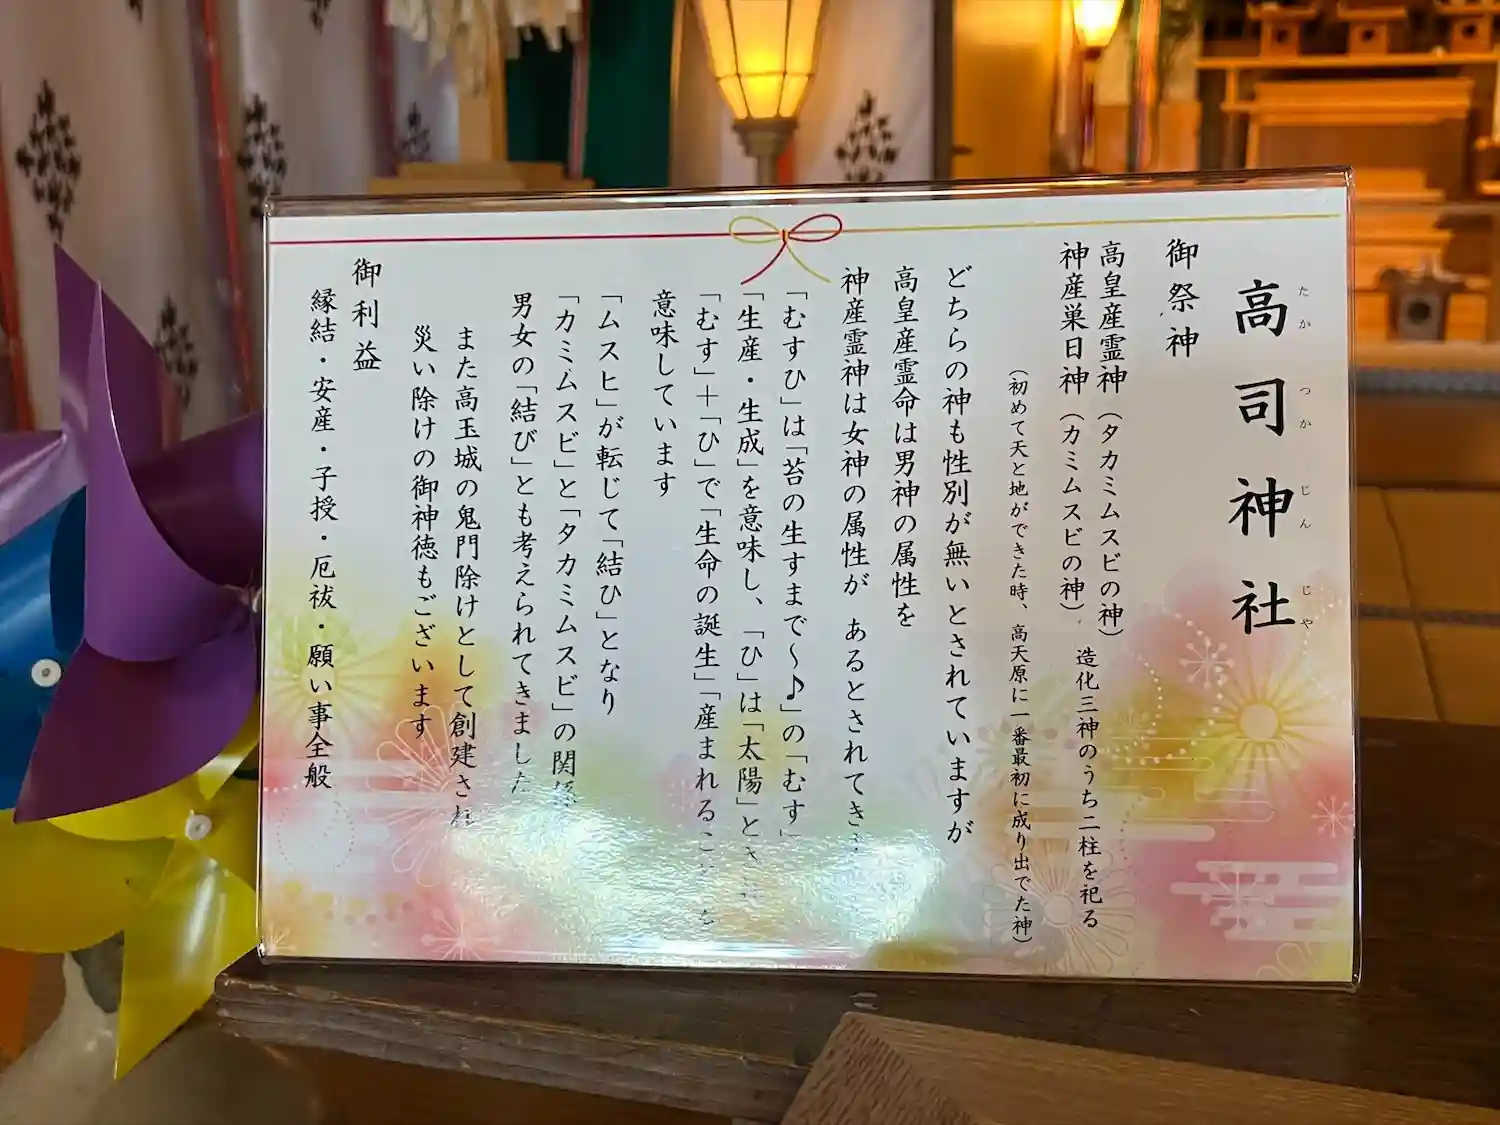 高司神社
たかつかじんじや
御祭神
高皇産霊神（タカミムスビの神）
神産巣日神（カミムスビの神）
造化三神のうち二柱を祀る
（初めて天と地ができた時、高天原に一番最初に成り出でた神）
どちらの神も性別が無いとされていますが
高皇産霊命は男神の属性を
神産霊神は女神の属性が あるとされてき
「むすひ」は「苔の生すまで～♪」の「むす」
「生産・生成」を意味し、「ひ」は「太陽」と
「むす」＋「ひ」で「生命の誕生」「産まれるこ
意味しています
「ムスヒ」が転じて「結ひ」となり
「カミムスビ」と「タカミムスビ」の関係
男女の「結び」とも考えられてきました
また高玉城の鬼門除けとして創建され
災い除けの御神徳もございます
御利益
縁結・安産・子授・厄祓・願い事全般